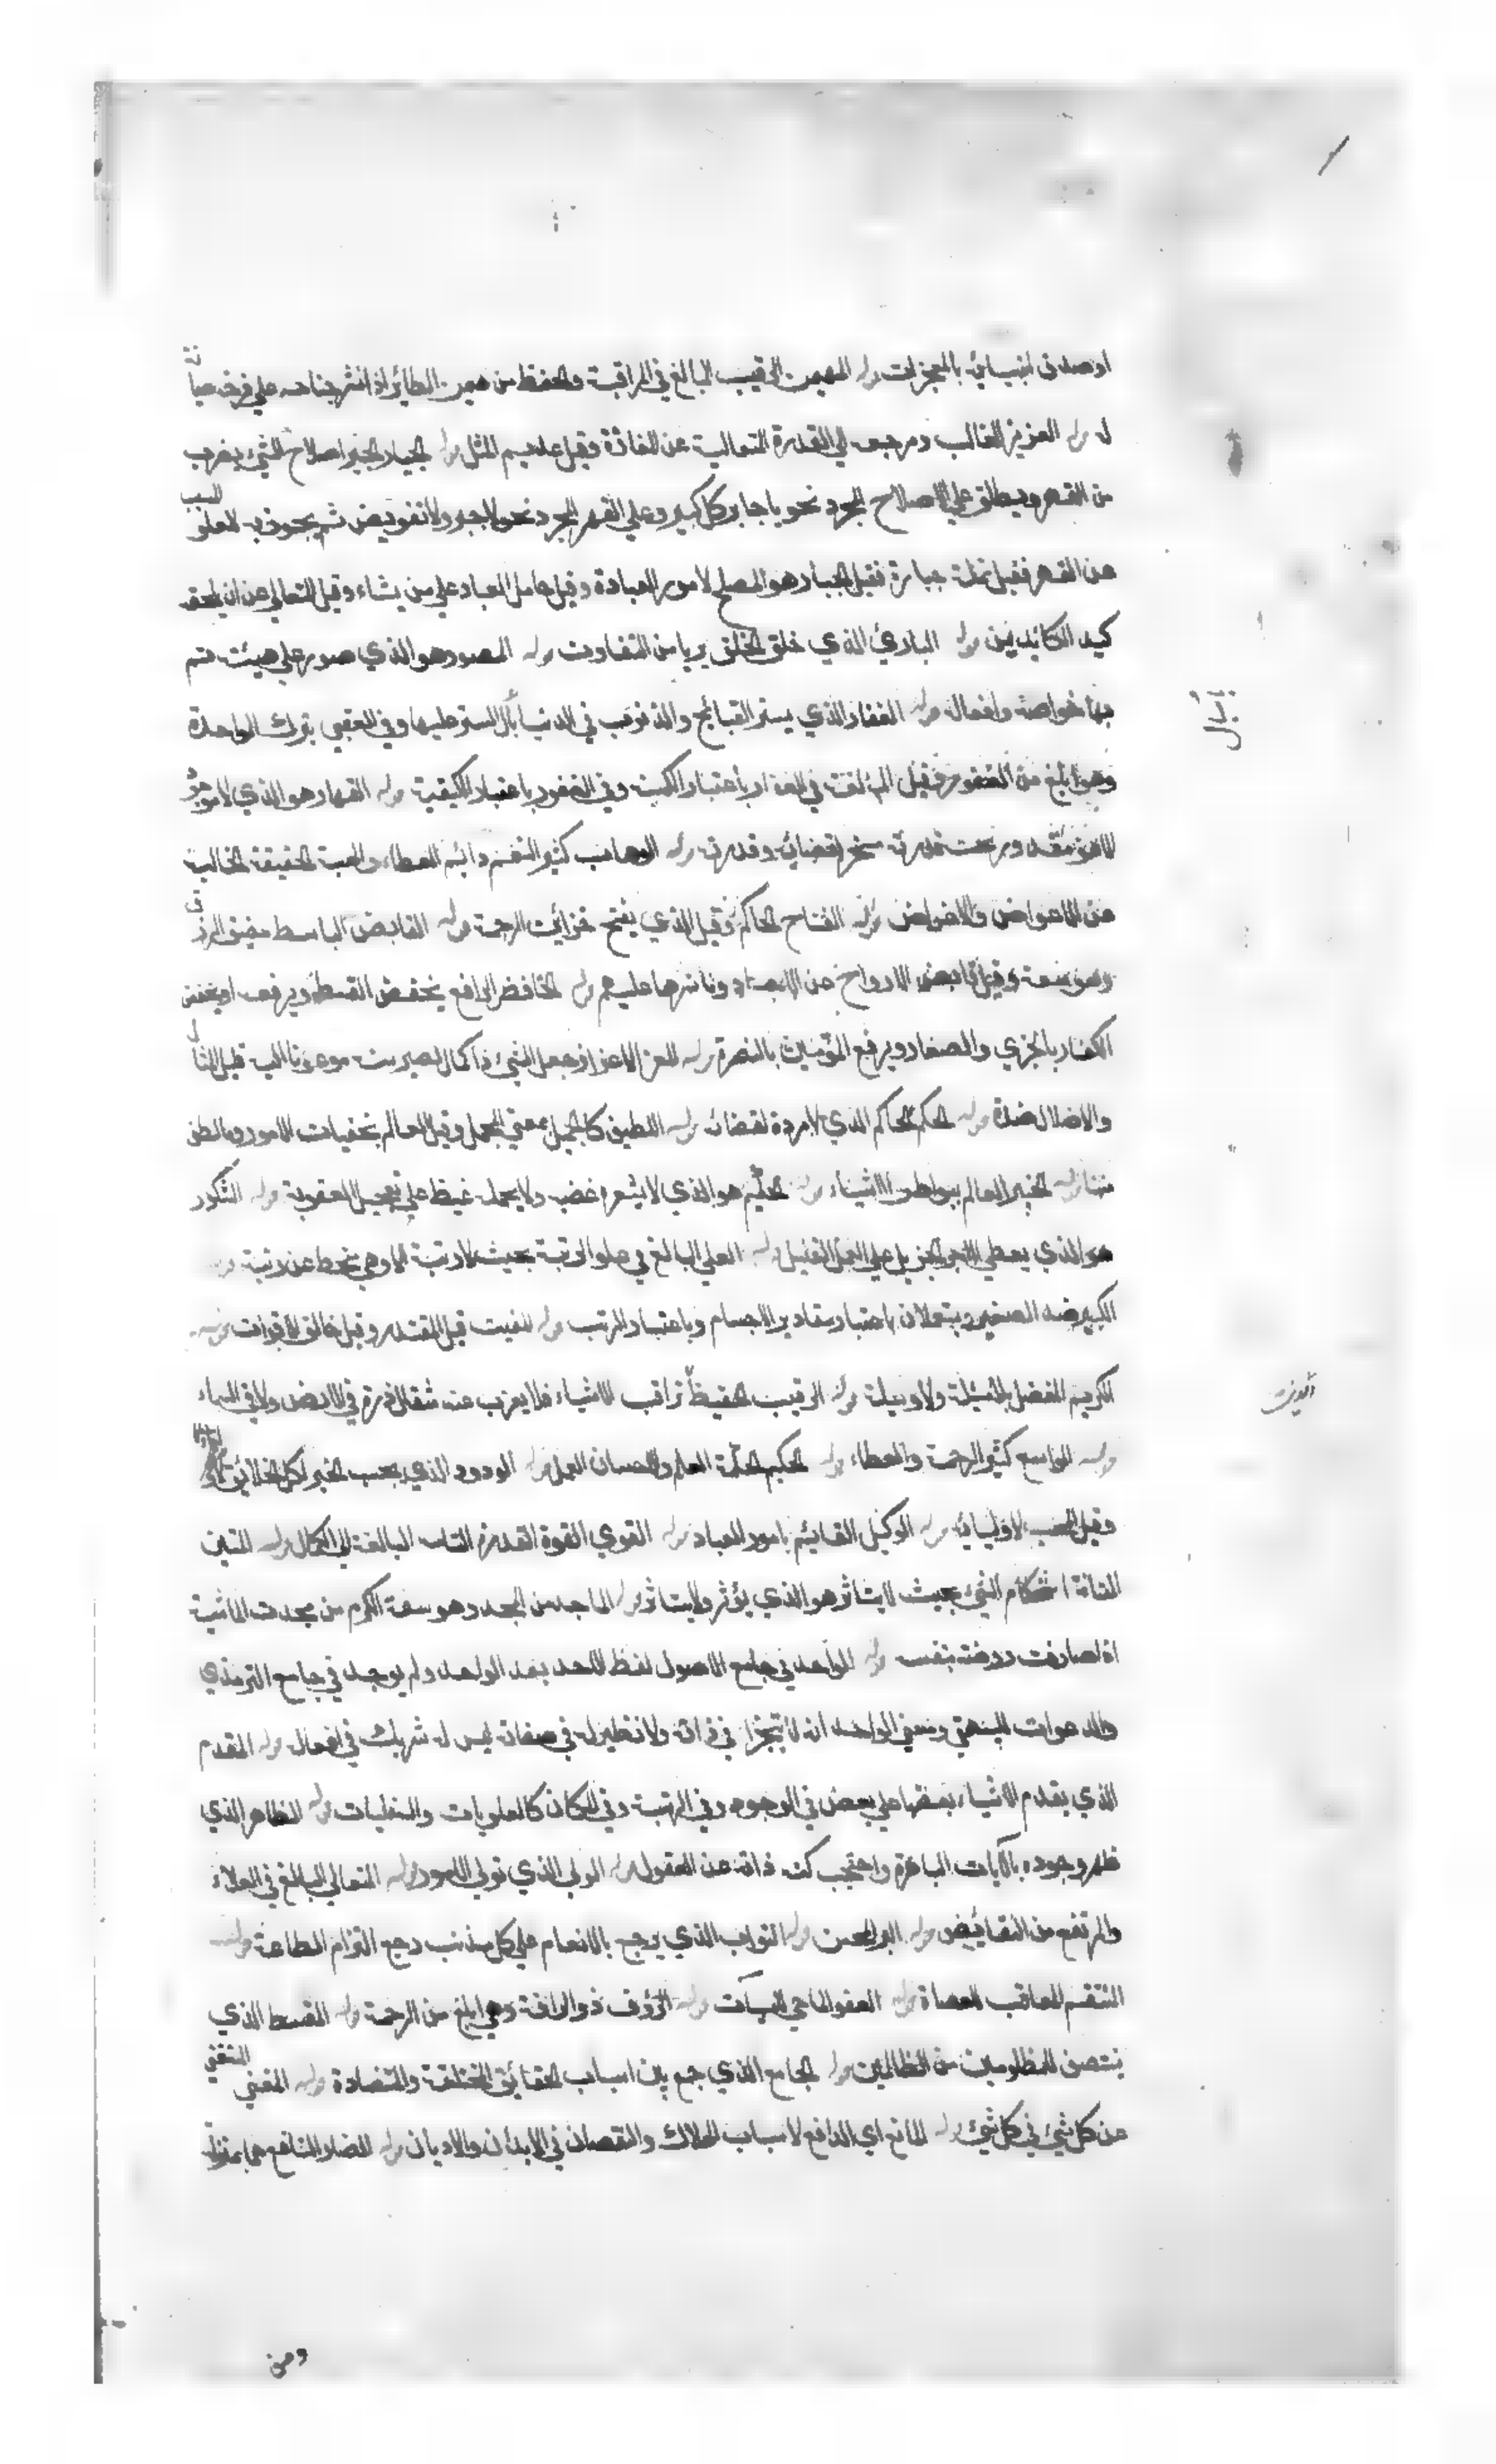 او صدق انبيائه بالمعجزات قوله المهيمن الرقيب البالغ في المراقبة والحفظ من هيمن الطائر اذا نشر جناحه على فرخه صيانة
له قوله العزيز الغالب ومرجعه الي القدرة المتعالية عن المعارضة وقيل عديم المثل قوله الجبار الجبر اصلاح الشيئ بضرب
من القهر ويطلق علي الاصلاح المجرد نحو يا جابر كل كسير وعلي القهر المجرد نحو لا جبر ولا تفويض ثم يجوز به
عن القهر فقيل نخلة جبارة فقيل الجبار هو المصلح لامور العباد وقيل حامل العباد علي من يشاء وقيل المتعالي عن ان يلحقه
كيد الكائدين قوله البارئ الذي خلق الخلق بريا من التفاوت قوله المصور هو الذي صور علي هيئت تتم
بها خواصه وافعاله قوله الغفار الذي يستر القبائح والذنوب في الدنيا باسبال الستر عليها وفي العقبي بترك المواخذة
وهو ابلغ من الغفور فقيل المبالغة في الغفار باعتبار الكمية وفي الغفور باعتبار الكيفية قوله القهار هو الذي لا موجود
الا هو مقهور تحت قدرته مسخر لقضائه وقدرته قوله الوهاب كثير النعم دائم العطاء والهبة الحقيقة الخالية
عن الاعواض والاغراض قوله الفتاح الحاكم وقيل الذي يفتح خزائن الرحمة قوله القابض الباسط مضيق الرزق
وموسعه وقيل قابض الارواح عن الاجساد وناشرها عليهم قوله الخافض الرافع يخفض القسط ويرفعه او يخفض
الكفار بالخزي والصغار ويرفع المؤمنين بالنصرة قوله المعز الاعزاز جعل الشيئ ذا كمال يصير به مرغوبا اليه قليل المثال
والاذلال ضده قوله الحكم الحاكم الذي لا مرد لقضائه قوله اللطيف كالجميل بمعني المجمل وقيل العالم بخفيات الامور وما لطف
منها قوله الخبير العالم ببواطن الاشياء قوله الحليم هو الذي لا يستفزه غضب ولا يحمله غيظ علي تعجيل العقوبة قوله الشكور
هو الذي يعطي الاجر الجزيل علي العمل القليل قوله العلي البالغ في علو الرتبة بحيث لا رتبة الا وهي منحطة عن رتبته قوله
الكبير ضد الصغير ويستعملان باعتبار مقادير الاجسام وباعتبار الرتب قوله المقيت قيل المقتدر وقيل خالق الاقوات قوله
الكريم المفضل بلا مسئلة ولا وسيلة قوله الرقيب الحفيظ يراقب الاشياء فلا يعزب عنه مثقال ذرة في الارض ولا في السماء
قوله الواسع كثير الرحمة والعطاء قوله الحكيم الحكمة العلم واحسان العمل قوله الودود الذي يحب الخير لكل الخلائق
وقيل المحب لاوليائه قوله الوكيل القائم بامور العباد قوله القوي القوة القدرة التامة البالغة الي الكمال قوله المتين
المتانة استحكام الشيئ بحيث لا يتاثر هو الذي يؤثر ولا يتاثر قوله الماجد من المجد وهو سعة الكرم من مجدت الماشية
اذا صادفت روضة نفسه قوله الواحد في جامع الاصول لفظ الاحد بعد الواحد ولم يوجد في جامع الترمذي
والدعوات للبيهقي ومعني الواحد انه لا يتجزا في ذاته ولا نظير له في صفاته ليس له شريك في افعاله قوله المقدم
الذي يقدم الاشياء بعضها علي بعض في الوجود وفي الرتبة وفي المكان كالعلويات والسفليات قوله الظاهر الذي
ظهر وجوده بالآيات الباهرة واحتجب كنه ذاته عن العقول قوله الولي الذي تولي الامور قوله المتعالي البالغ في العلاء
والمرتفع من النقائص قوله البر المحسن قوله التواب الذي يرجع بالانعام علي كل مذنب رجع التزام الطاعة قوله
المنتقم المعاقب العصاة قوله العفو الماحي السيآت قوله الرؤف ذو الرافة وهي ابلغ من الرحمة قوله المقسط الذي
ينتصف المظلومين من الظالمين قوله الجامع الذي جمع بين اسباب الحقائق المختلفة والمتضادة قوله المغني المستغني
عن كل شيئ في كل شيئ قوله المانع اي الدافع لاسباب الهلاك والنقصان في الابدان والاديان قوله الضار النافع هما بمنزلة
ومن